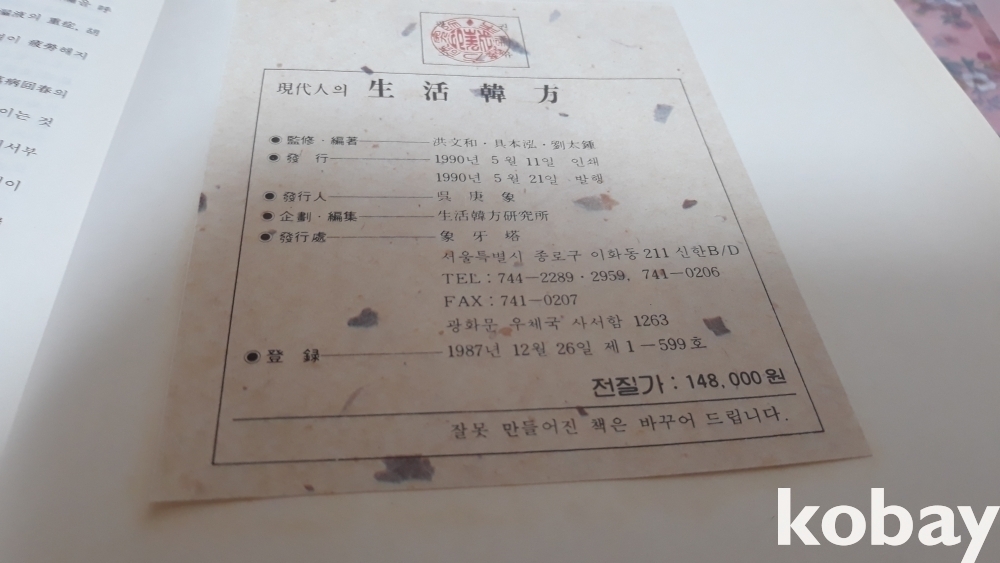 現代人의 生活韓方
● 監修·編著 洪文和·具本泓·劉太鍾
● 發行 1990년 5월 11일 인쇄
1990년 5월 21일 발행
● 發行人 吳庚象
● 企劃·編集 生活韓方硏究所
● 發行處 象牙塔
서울특별시 종로구 이화동 211 신한B/D
TEL : 744-2289·2959, 741-0206
FAX : 741-0207
광화문 우체국 사서함 1263
● 登錄 1987년 12월 26일 제1-599호
전질가 : 148,000원
잘못 만들어진 책은 바꾸어 드립니다.
kobay